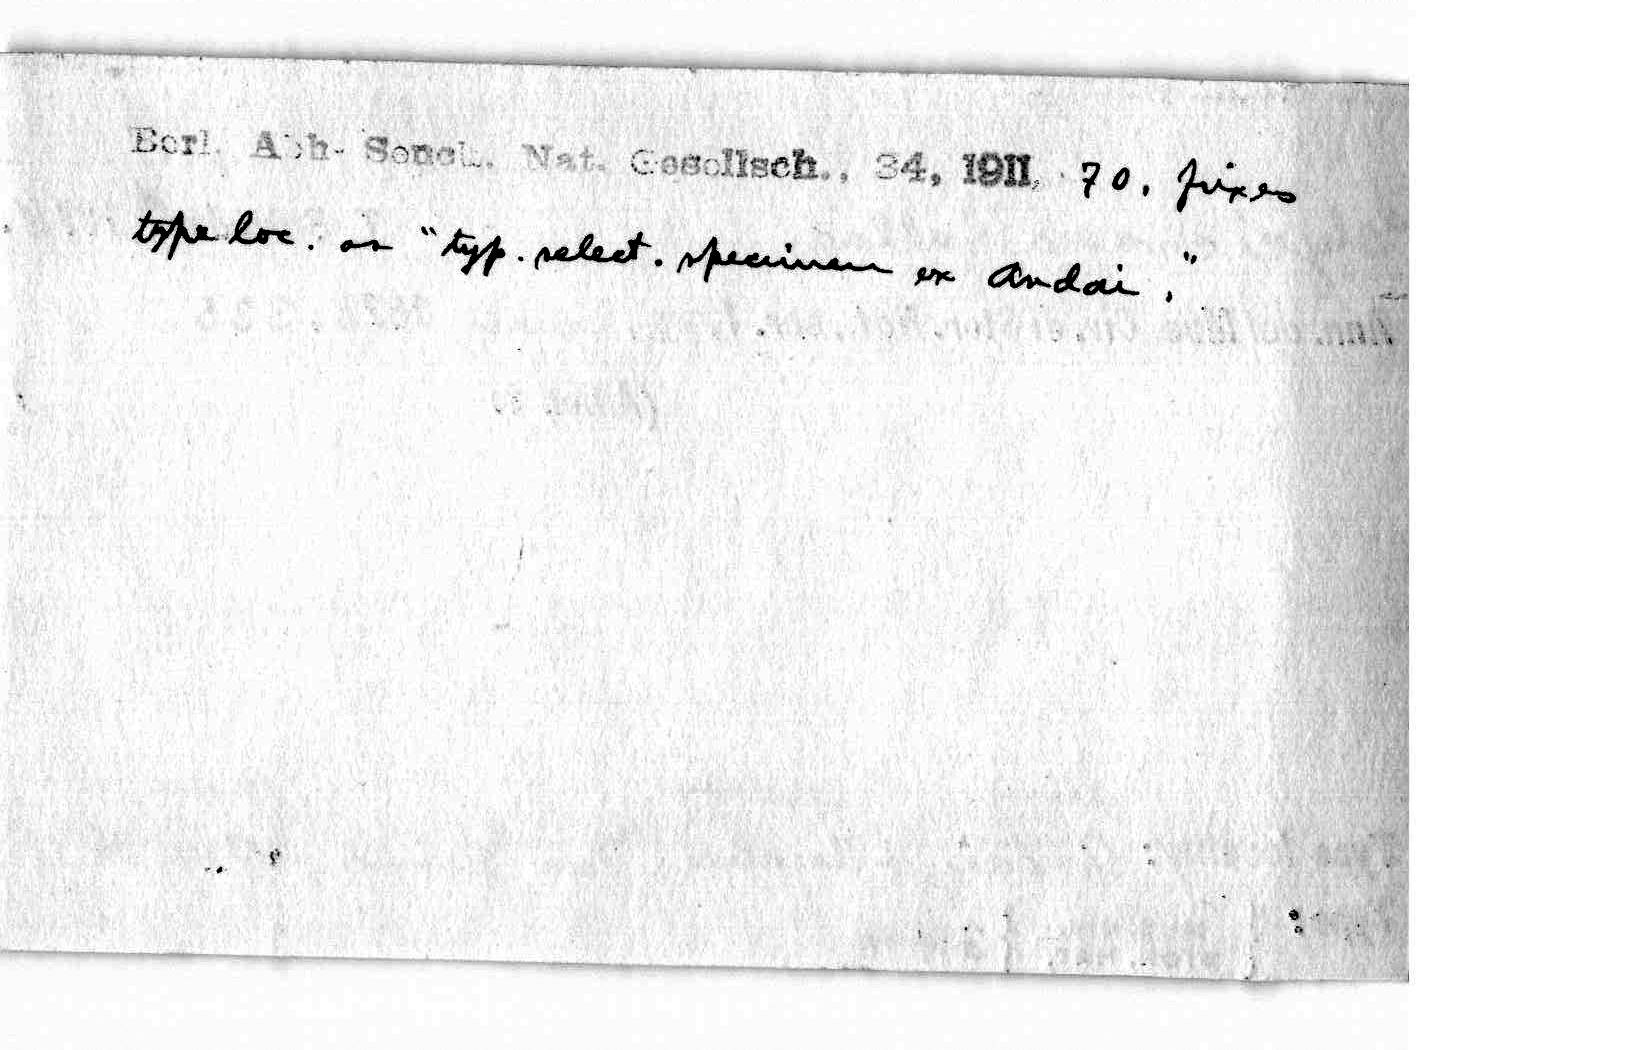 Berl. Abh. Senck. Nat. Gesellsch., 34, 1911, 70. fixes
type loc. as "typ. select. specimen ex Andai."